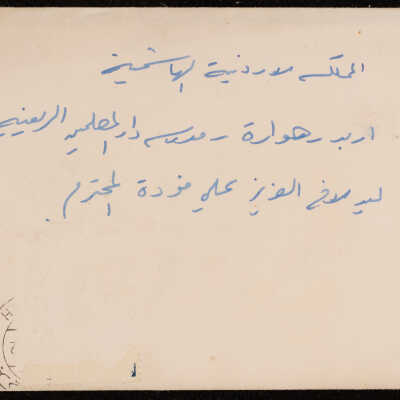 المملكه الاردنية الهاشمية
اربد - هوارة - مدرسه دار المعلمين الريفيه
ليد الاخ العزيز علي فودة المحترم.